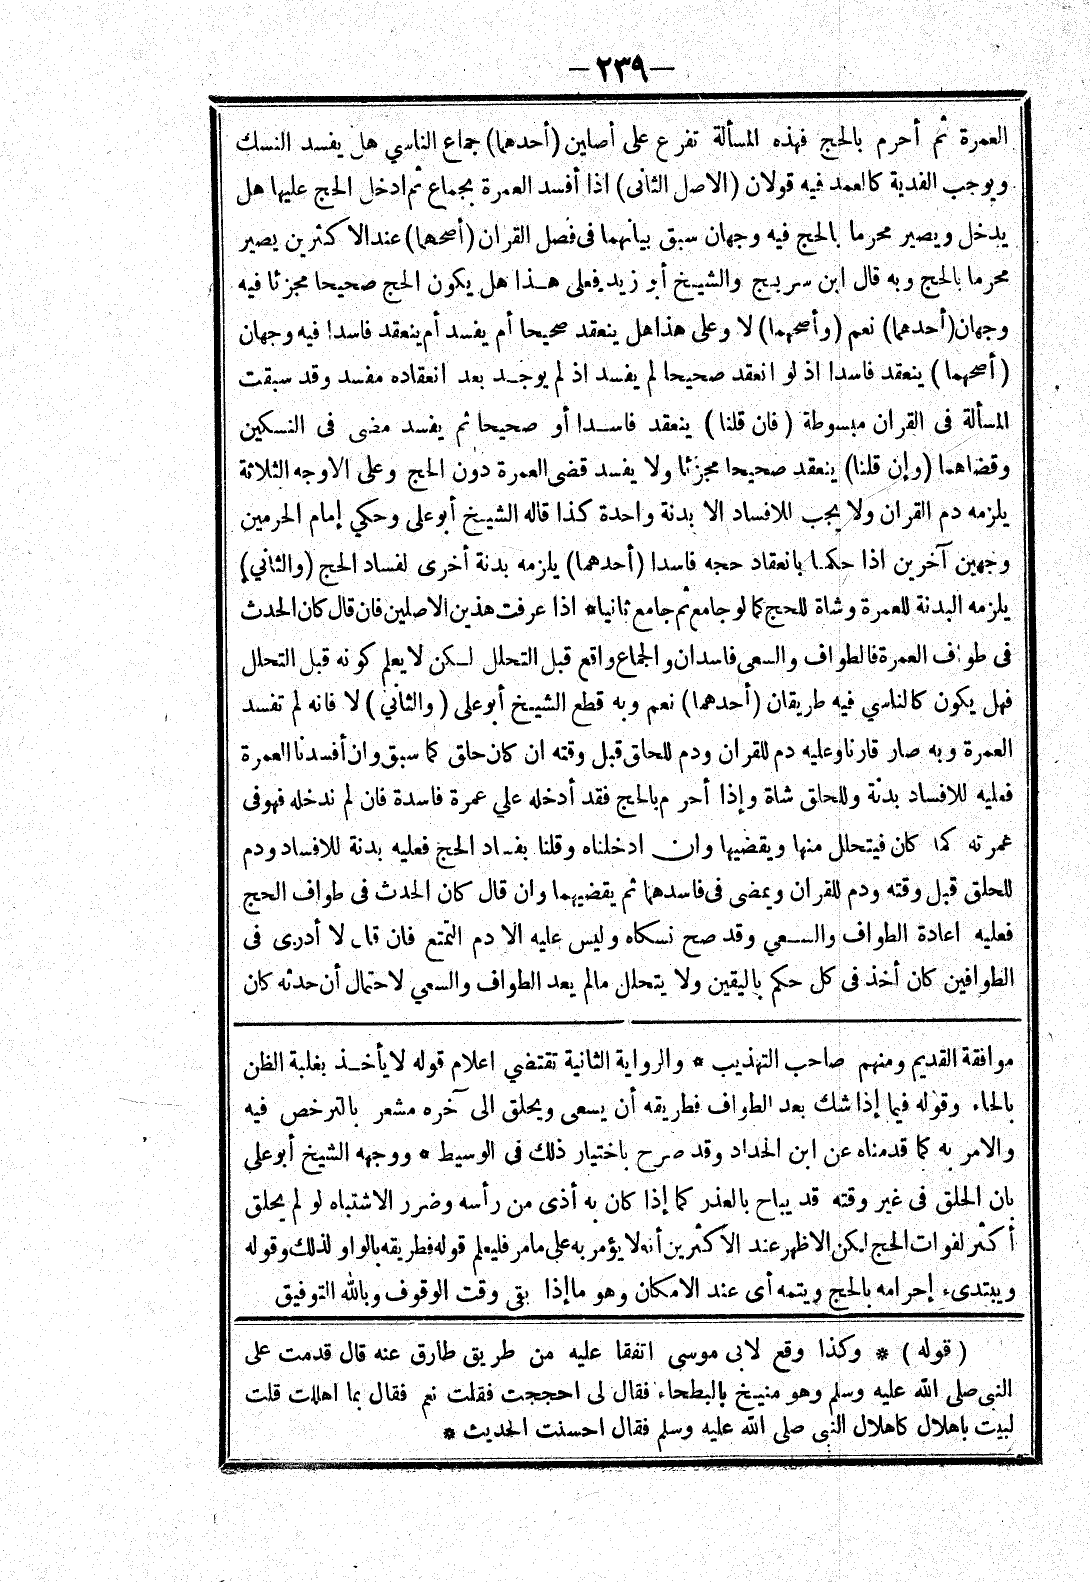 -٢٣٩-
العمرة ثم أحرم بالحج فهذه المسألة تفرع على أصلين (أحدهما) جماع الناسي هل يفسد النسك
ويوجب الفدية كالعمد فيه قولان (الاصل الثانى) اذا أفسد العمرة بجماع ثم ادخل الحج عليها هل
يدخل ويصير محرما بالحج فيه وجهان سبق بيانهما فى فصل القران (أصحهما) عند الاكثرين يصير
محرما بالحج وبه قال ابن سريج والشيخ أبو زيد فعلى هذا هل يكون الحج صحيحا مجزئا فيه
وجهان (أحدهما) نعم (وأصحهما) لا وعلى هذا هل ينعقد صحيحا أم يفسد أم ينعقد فاسدا فيه وجهان
(أصحهما) ينعقد فاسدا اذ لو انعقد صحيحا لم يفسد اذ لم يوجد بعد انعقاده مفسد وقد سبقت
المسألة فى القران مبسوطة (فان قلنا) ينعقد فاسدا أو صحيحا ثم يفسد مضى فى النسكين
وقضاهما (وإن قلنا) ينعقد صحيحا مجزئا ولا يفسد قضى العمرة دون الحج وعلى الاوجه الثلاثة
يلزمه دم القران ولا يجب للافساد الا بدنة واحدة كذا قاله الشيخ أبو على وحكي إمام الحرمين
وجهين آخرين اذا حكمنا بانعقاد حجه فاسدا (أحدهما) يلزمه بدنة أخرى لفساد الحج (والثاني)
يلزمه البدنة للعمرة وشاة للحج كما لو جامع ثم جامع ثانيا * اذا عرفت هذين الاصلين فان قال كان الحدث
فى طواف العمرة فالطواف والسعى فاسدان والجماع واقع قبل التحلل لكن لا يعلم كونه قبل التحلل
فهل يكون كالناسي فيه طريقان (أحدهما) نعم وبه قطع الشيخ أبو على (والثاني) لا فانه لم تفسد
العمرة وبه صار قارنا وعليه دم للقران ودم للحلق قبل وقته ان كان حلق كما سبق وان أفسدنا العمرة
فعليه للافساد بدنة وللحلق شاة وإذا أحرم بالحج فقد أدخله علي عمرة فاسدة فان لم ندخله فهو فى
عمرته كما كان فيتحلل منها ويقضيها وان ادخلناه وقلنا بفساد الحج فعليه بدنة للافساد ودم
للحلق قبل وقته ودم للقران ويمضى فى فاسدهما ثم يقضيهما وان قال كان الحدث فى طواف الحج
فعليه اعادة الطواف والسعي وقد صح نسكاه وليس عليه الا دم التمتع فان قال لا أدرى فى
الطوافين كان أخذ فى كل حكم باليقين ولا يتحلل مالم يعد الطواف والسعي لاحتمال أن حدثه كان
موافقة القديم ومنهم صاحب التهذيب * والرواية الثانية تقتضي اعلام قوله لا يأخذ بغلبة الظن
بالحاء وقوله فيما إذا شك بعد الطواف فطريقه أن يسعى ويحلق الى آخره مشعر بالترخص فيه
والامر به كما قدمناه عن ابن الحداد وقد صرح باختيار ذلك فى الوسيط * ووجهه الشيخ أبو على
بان الحلق فى غير وقته قد يباح بالعذر كما إذا كان به أذى من رأسه وضرر الاشتباه لو لم يحلق
أكثر لفوات الحج لكن الاظهر عند الأكثرين أنه لا يؤمر به على مامر فليعلم قوله فطريقه بالواو لذلك وقوله
ويبتدىء إحرامه بالحج ويتمه أى عند الامكان وهو ماإذا بقى وقت الوقوف وبالله التوفيق
(قوله) * وكذا وقع لابى موسى اتفقا عليه من طريق طارق عنه قال قدمت على
النبى صلى الله عليه وسلم وهو منيخ بالبطحاء فقال لى احججت فقلت نعم فقال بما اهللت قلت
لبيت باهلال كاهلال النبى صلى الله عليه وسلم فقال احسنت الحديث *